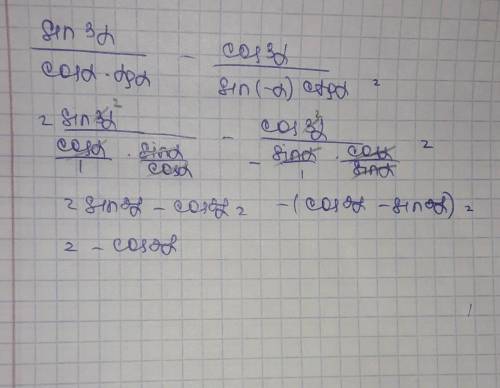 sin 3α / cosα · tgα − cos3α / sin(-α) ctgα =
= sin3α² / cosα/1 · sinα/cosα − cos3α² / − sinα/1 · cosα/sinα =
= sin2α − cos2α = −(cos2α − sin2α) =
= − cos2α